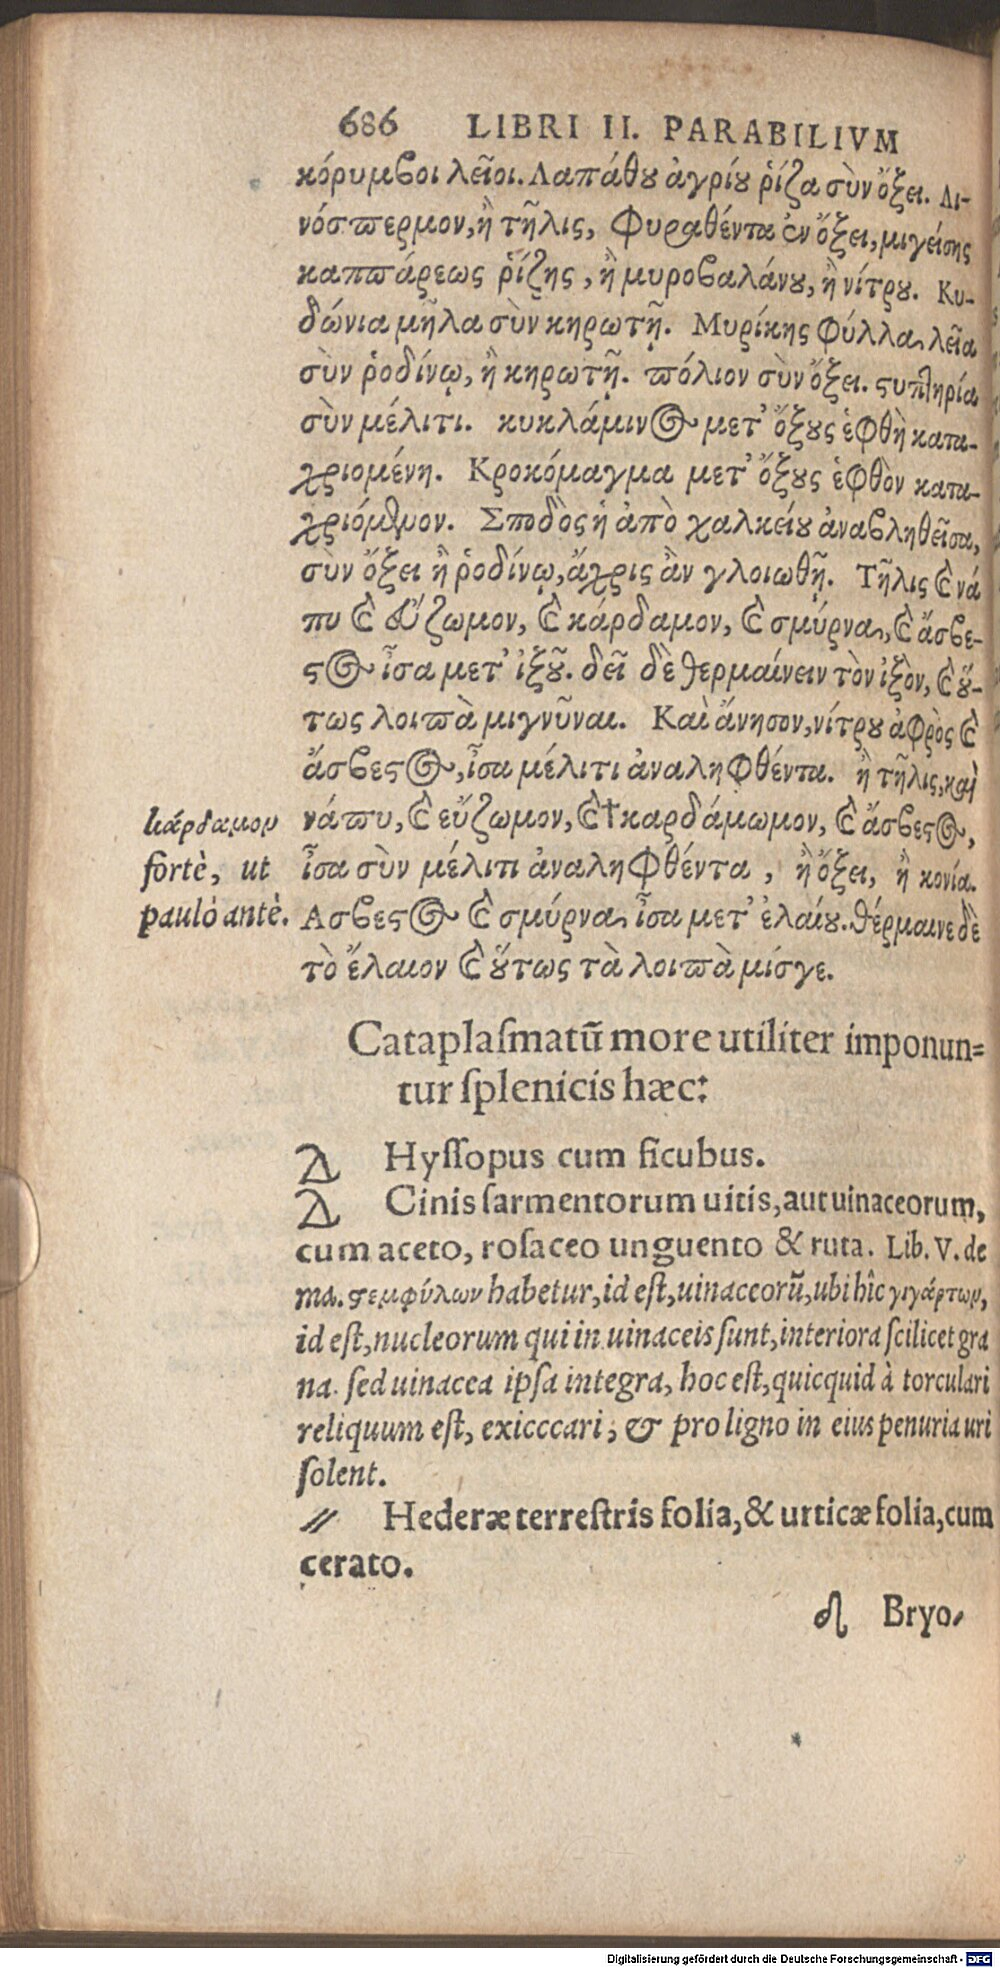 686 LIBRI II. PARABILIVM
κόρυμβοι λεῖοι. Λαπάθου ἀγρίου ῥίζα σὺν ὄξει. Λι-
νόσπερμον, ἢ τῆλις, φυραθέντα ἐν ὄξει, μιγείσης
καππάρεως ῥίζης, ἢ μυροβαλάνου, ἢ νίτρου. Κυ-
δώνια μῆλα σὺν κηρωτῇ. Μυρίκης φύλλα λεῖα
σὺν ῥοδίνῳ, ἢ κηρωτῇ. πόλιον σὺν ὄξει. στυπτηρία
σὺν μέλιτι. κυκλάμινος μετ' ὄξους ἑφθὴ κατα-
χριομένη. Κροκόμαγμα μετ' ὄξους ἑφθὸν κατα-
χριόμενον. Σποδὸς ἡ ἀπὸ χαλκείου ἀναβληθεῖσα,
σὺν ὄξει ἢ ῥοδίνῳ, ἄχρις ἂν γλοιωθῇ. Τῆλις καὶ νά
πυ καὶ εὔζωμον, καὶ κάρδαμον, καὶ σμύρνα, καὶ ἄσβε-
στος ἶσα μετ' ἰξοῦ. δεῖ δὲ θερμαίνειν τὸν ἰξὸν, καὶ οὕ-
τως λοιπὰ μιγνῦναι. Καὶ ἄνησον, νίτρου ἀφρὸς καὶ
ἄσβεστος, ἶσα μέλιτι ἀναληφθέντα. ἢ τῆλις, καὶ
νάπυ, καὶ εὔζωμον, καὶ † καρδάμωμον, καὶ ἄσβεστος,
κάρδαμον
fortè, ut
paulò antè.
ἶσα σὺν μέλιτι ἀναληφθέντα, ἢ ὄξει, ἢ κονία.
Ασβεστος καὶ σμύρνα ἶσα μετ' ἐλαίου. θέρμαινε δὲ
τὸ ἔλαιον καὶ οὕτως τὰ λοιπὰ μίσγε.
Cataplaſmatũ more utiliter imponun=
tur ſplenicis hæc:
Δ Hyſſopus cum ficubus.
Δ Cinis ſarmentorum uitis, aut uinaceorum,
cum aceto, roſaceo unguento & ruta. Lib. V. de
ma. στεμφύλων habetur, id eſt, uinaceorũ, ubi hîc γιγάρτων,
id eſt, nucleorum qui in uinaceis ſunt, interiora ſcilicet gra
na. ſed uinacea ipſa integra, hoc eſt, quicquid à torculari
reliquum eſt, exicccari, & pro ligno in eius penuria uri
ſolent.
〃 Hederæ terreſtris folia, & urticæ folia, cum
cerato.
♌ Bryo-
Digitalisierung gefördert durch die Deutsche Forschungsgemeinschaft - DFG